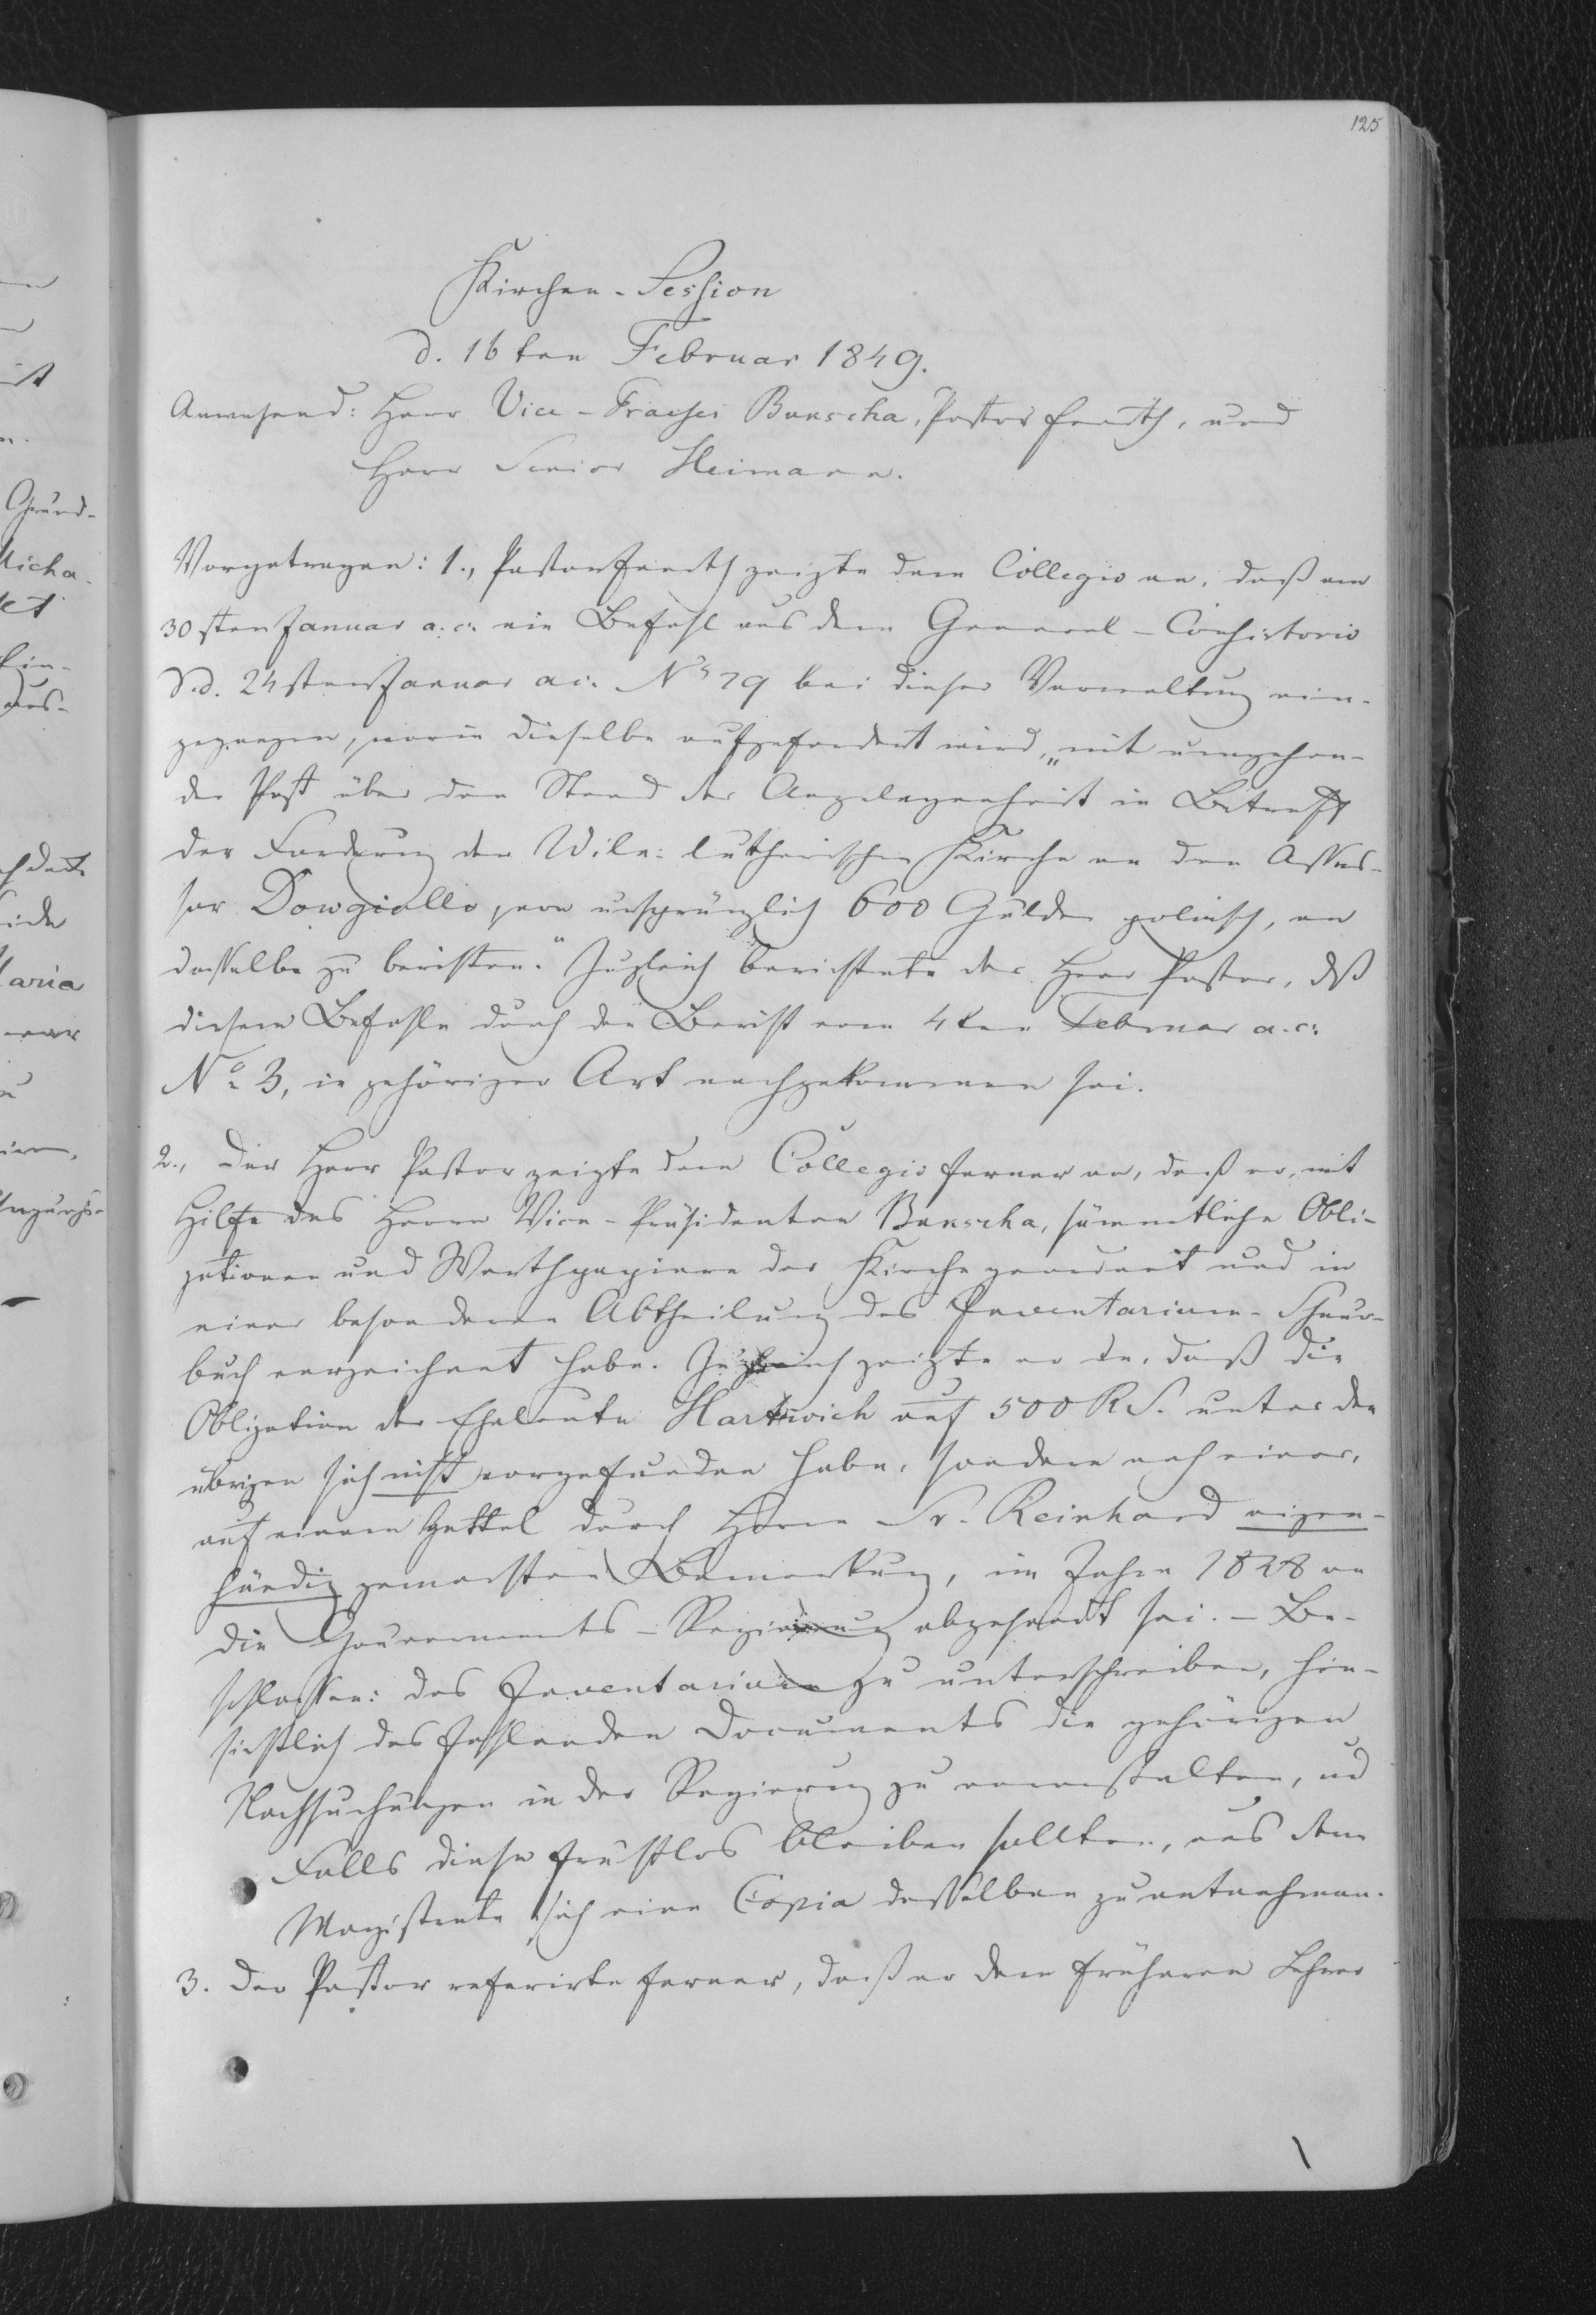 125
Kirchen-Session
d. 16ten Februar 1849.
Anwesend: Herr Vice-Praeses Bunscha, Pastor und
Herr Senior Heimann.
Vorgetragen: 1., Pastor zeigte dem Collegio an, daß am
30sten Januar a. c. ein Befehl aus dem General-Consistorio
d.d. 24sten Januar a.c. No 79 bei dieser Verwaltung ein-
gegangen, worin dieselbe aufgefordert wird, „mit umgehen-
der Post über den Stand der Angelegenheit in Betreff
der Forderung der Wiln: lutherischen Kirche an den Asses-
sor Dowgiallo, von ursprünglich 600 Gulden polnisch, an
dasselbe zu berichten." Zugleich berichtete der Herr Pastor, daß
diesem Befehle durch den Bericht vom 4ten Februar a. c.
No 3, in gehöriger Art nachgekommen sei.
2., Der Herr Pastor zeigte dem Collegio ferner an, daß er, mit
Hilfe des Herrn Vice-Präsidenten Bunscha, sämmtliche Obli-
gationen und Werthpapiere der Kirche geordnet und in
einer besonderen Abtheilung des Inventarium-Schnur-
buch verzeichnet habe. Zugleich zeigte er an, daß die
Obligation der Eheleute Hartwich auf 500 R S. unter den
übrigen sich nicht vorgefunden habe, sondern nach einer,
auf einem Zettel durch Herrn Sr. Reinhard eigen-
händig gemachten Bemerkung, im Jahre 1828 an
die Gouvernements-Regierung abgesandt sei. - Be-
schlossen: das Inventarium zu unterschreiben, hin-
sichtlich des fehlenden Documents die gehörigen
Nachsuchungen in der Regierung zu veranstalten, und
Falls diese fruchtlos bleiben sollten, aus dem
Magistrate sich eine Copia desselben zu entnehmen.
3. Der Pastor referirte ferner, daß er dem früheren Lehrer